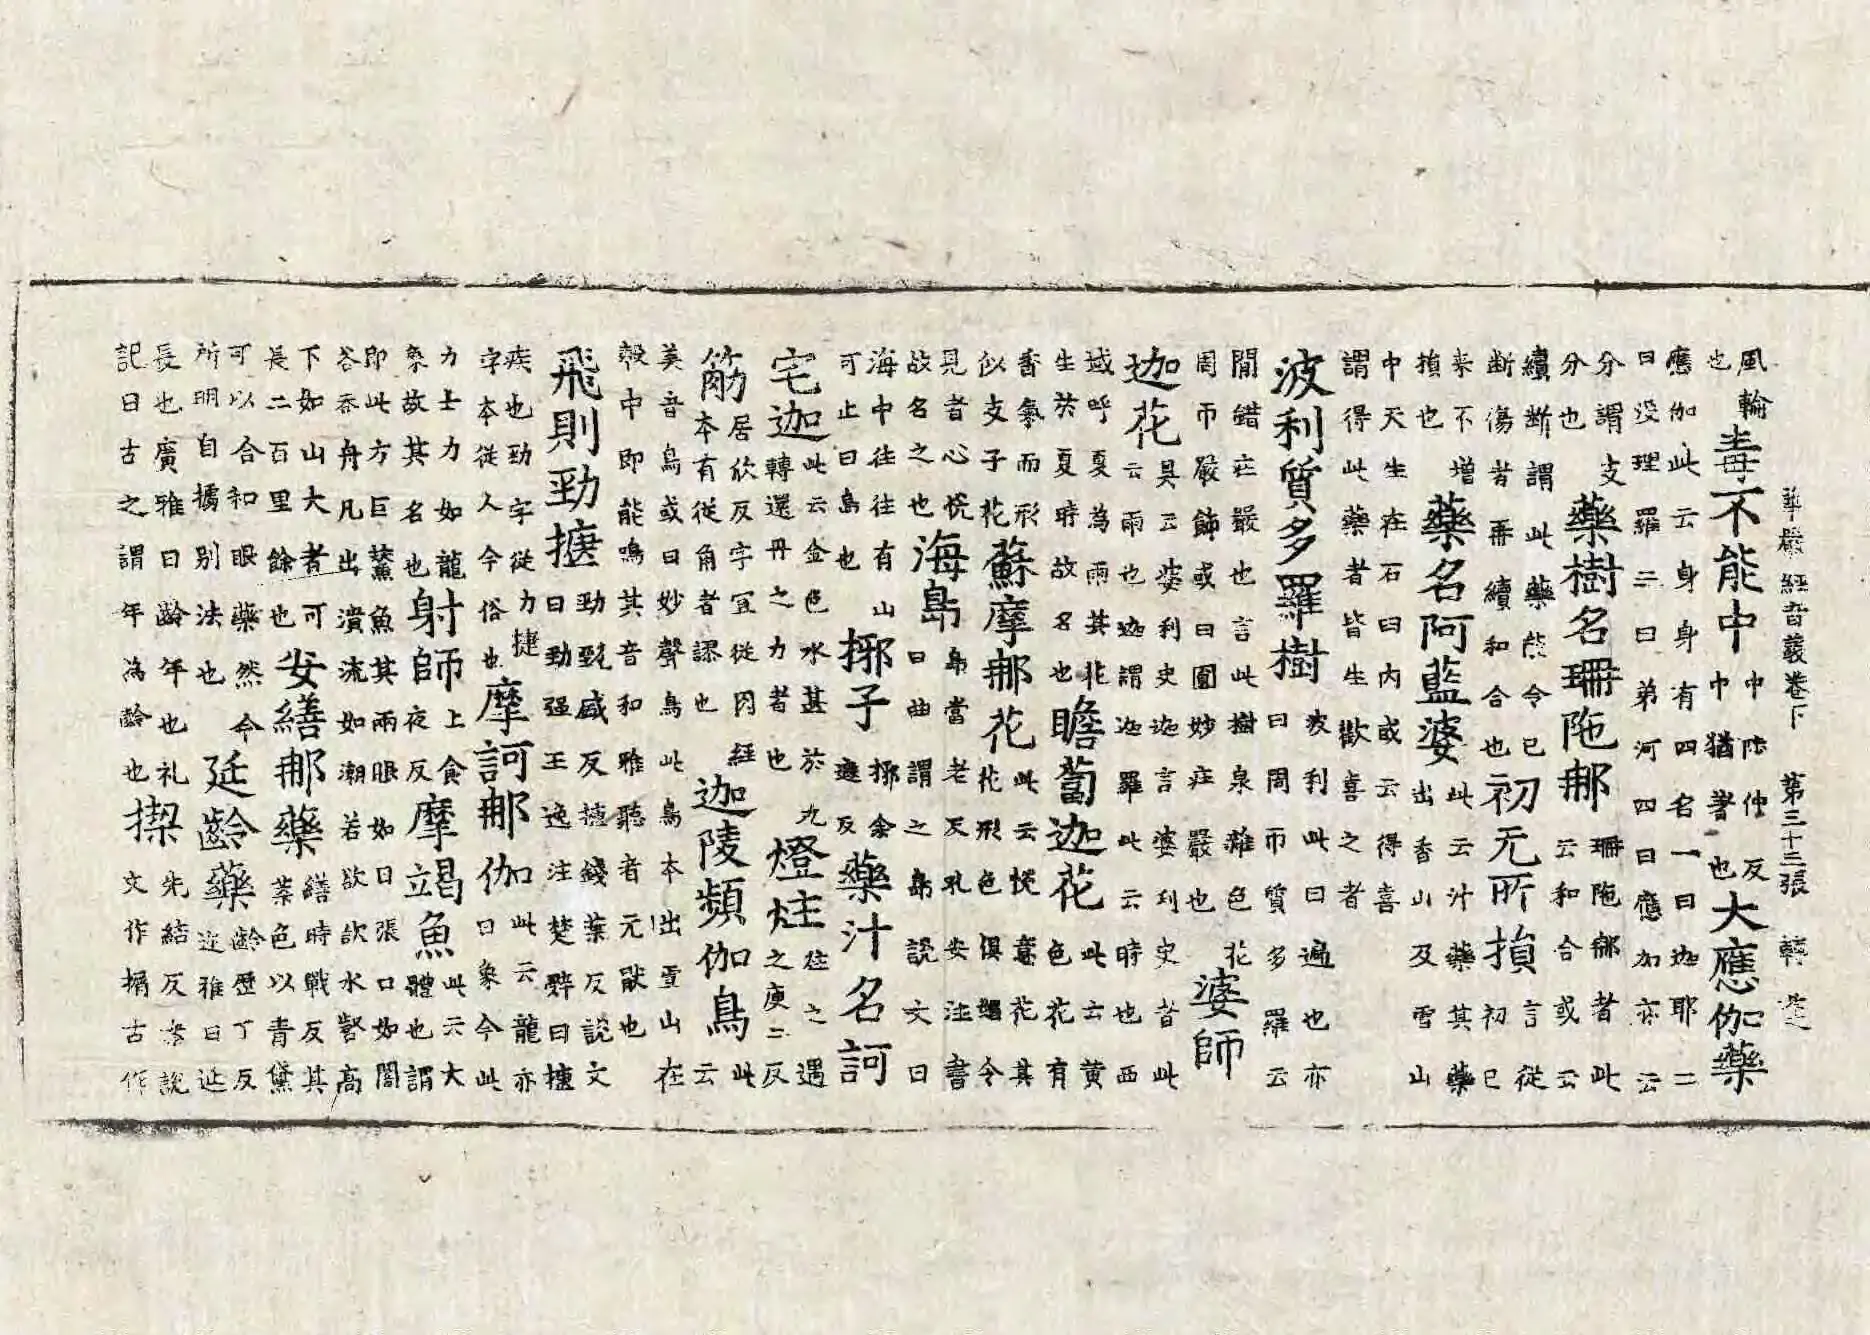 華嚴經音義卷下 第三十三張 轉
風輪也毒不能中中陟仲反中猶著也大應伽藥
應伽此云身身有四名一曰迦耶二曰設理羅三曰弟河四曰應加亦云
分謂支分也藥樹名珊陁那珊陁那者此云和合或云
續断謂此藥能令已断傷者再續和合也初元所損言從初已
来不增損也藥名阿藍婆此云汁藥其藥出香山及雪山
中天生在石臼内或云得喜謂得此藥者皆生歡喜之者
波利質多羅樹波利此曰遍也亦曰周帀質多羅云
間錯莊嚴也言此樹泉雜色花周帀嚴飾或曰圍妙莊嚴也婆師
迦花具云婆利史迦言婆利史者此云雨也迦謂迦羅此云時也西
域呼夏為雨其花生於夏時故名也瞻蔔迦花此云黄色花有
香氣而形似支子花蘇摩那花此云悅意花其花形色俱媚令
見者心悅故名之也海島島當老反孔安注書曰海曲謂之島說文曰
海中往往有山可止曰島也揶子揶余遮反藥汁名訶
宅迦此云金色水甚於九轉還丹之力者也燈炷炷之遇之庾二反
筋居欣反字冝從肉經本有從角者謬也迦陵頻伽鳥此云
美音鳥或曰妙聲鳥此鳥本出雪山在殼中即能鳴其音和雅聽者元猒也
飛則勁捷勁甄盛反捷錢葉反說文曰勁强王逸注楚辞曰捷
疾也勁字從力捷字本從人今俗也摩訶那伽此云龍亦曰象今此
力士力如龍象故其名也射師上食夜反摩竭魚此云大體也謂
即此方巨鼇魚其兩眼如日張口如闇谷吞舟凡出濆流如潮若欲歃水壑高
下如山大者可長二百里餘也安繕那藥繕時戰反其葉色以青黛
可以合和眼藥然今所明自據别法也延齡藥齡歷丁反迩雅曰延
長也廣雅曰齡年也礼記曰古之謂年為齡也揳先結反案說文作揳古作